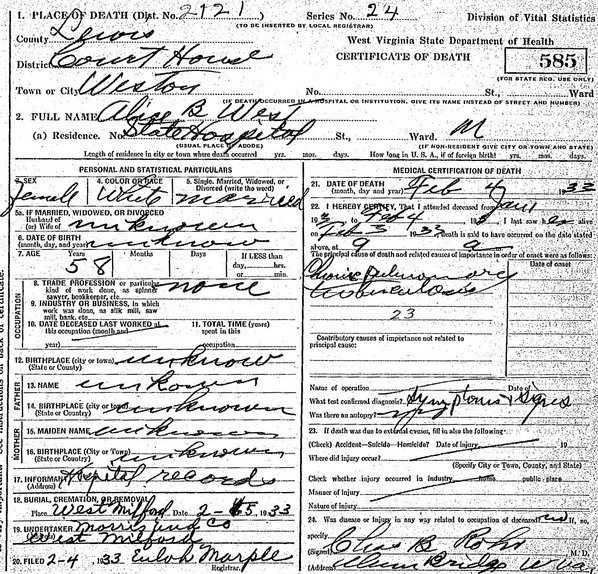 1. PLACE OF DEATH (Dist. No. 2121) Series No. 24 Division of Vital Statistics
(TO BE INSERTED BY LOCAL REGISTRAR)
County Lewis West Virginia State Department of Health
District Court House CERTIFICATE OF DEATH 585
(FOR STATE REG. USE ONLY)
Town or City Weston No. St., Ward
(IF DEATH OCCURRED IN A HOSPITAL OR INSTITUTION, GIVE ITS NAME INSTEAD OF STREET AND NUMBER)
2. FULL NAME Alice B. West
(a) Residence. No. State Hospital St., Ward. M
(USUAL PLACE OF ABODE) (IF NON-RESIDENT GIVE CITY OR TOWN AND STATE)
Length of residence in city or town where death occurred yrs. mos. days. How long in U. S. A., if of foreign birth? yrs. mos. days.
PERSONAL AND STATISTICAL PARTICULARS
3. SEX 4. COLOR OR RACE 5. Single, Married, Widowed, or
Divorced (write the word)
Female White married
5a. IF MARRIED, WIDOWED, OR DIVORCED
Husband of
(or) Wife of unknown
6. DATE OF BIRTH
(month, day, and year) unknow
7. AGE Years Months Days If LESS than
1 day, hrs.
or min.
58
OCCUPATION
8. TRADE PROFESSION or particular
kind of work done, as spinner
sawyer, bookkeeper, etc. none
9. INDUSTRY OR BUSINESS, in which
work was done, as silk mill, saw
mill, bank, etc.
10. DATE DECEASED LAST WORKED at
this occupation (month and
year)
11. TOTAL TIME (years)
spent in this
occupation
12. BIRTHPLACE (city or town) unknow
(State or Country)
FATHER
13. NAME unkown
14. BIRTHPLACE (city or town) unknown
(State or Country)
MOTHER
15. MAIDEN NAME unknown
16. BIRTHPLACE (City or Town) unknown
(State or Country)
17. INFORMANT Hospital records
(Address)
18. BURIAL, CREMATION, OR REMOVAL
Place West Milford Date 2-5, 1933
19. UNDERTAKER Morris and Co
West Milford
20. FILED 2-4 1933 Eulah Marple
Registrar.
MEDICAL CERTIFICATION OF DEATH
21. DATE OF DEATH
(month, day and year) Feb 4 1933
22. I HEREBY CERTIFY, That I attended deceased from Jan 1
193 Feb 4 193 I last saw her
on Feb-3 1933, death is said to have occurred on the date stated
above, at 9 a
The principal cause of death and related causes of importance in order of onset were as follows:
Date of onset
Chronic Pulmonary
tuberculosis
23
Contributory causes of importance not related to
principal cause:
Name of operation Date of
What test confirmed diagnosis? Symptoms & Signs
Was there an autopsy?
23. If death was due to external causes, fill in also the following:
(Check) Accident—Suicide—Homicide? Date of injury 19
Where did injury occur?
(Specify City or Town, County, and State)
Check whether injury occurred in industry, home public place
Manner of injury
Nature of injury
24. Was disease or injury in any way related to occupation of deceased? no If, no,
specify
(Signed) Chas B Rohr M. D.
(Address) Bridge W Va